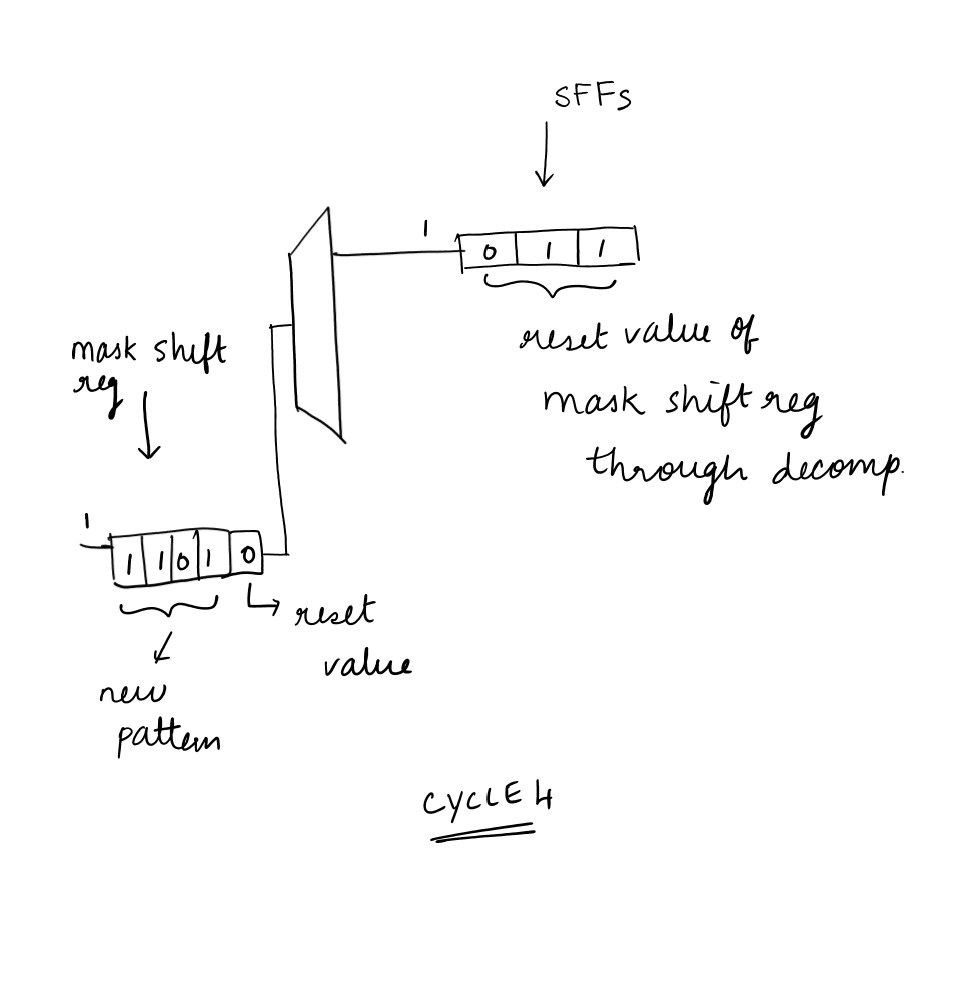 SFFs
1
0 1 1
reset value of
mask shift reg
through decomp.
mask shift
reg
1
1 1 0 1 0
reset
value
new
pattern
CYCLE 4